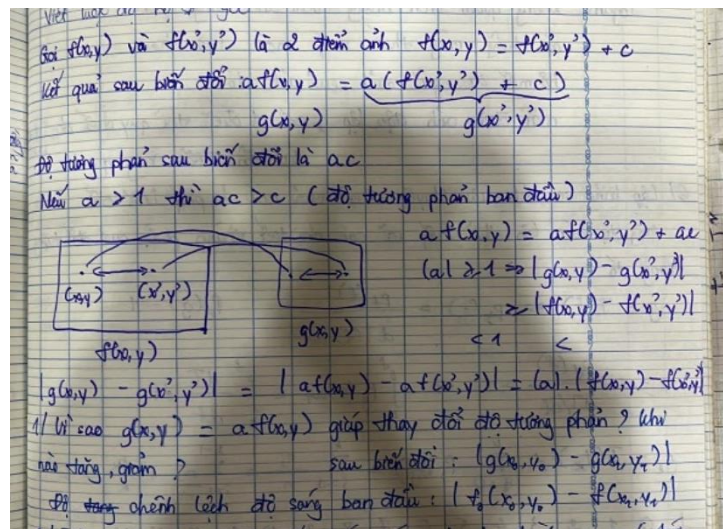 Gọi f(x,y) và f(x',y') là 2 điểm ảnh f(x,y) = f(x',y') + c
Kết quả sau biến đổi: af(x,y) = a(f(x',y') + c)
g(x,y) g(x',y')
Độ tương phản sau biến đổi là ac
Nếu a > 1 thì ac > c (độ tương phản ban đầu)
a f(x,y) = af(x',y') + ac
|a| ≥ 1 => |g(x,y) - g(x',y')|
≥ |f(x,y) - f(x',y')|
< 1 <
(x,y) (x',y')
f(x,y)
g(x,y)
|g(x,y) - g(x',y')| = |af(x,y) - af(x',y')| = |a|.|f(x,y) - f(x',y')|
1/ Vì sao g(x,y) = a f(x,y) giúp thay đổi độ tương phản? Khi
nào tăng, giảm? sau biến đổi: |g(x₀,y₀) - g(x₁,y₁)|
Độ chênh lệch độ sáng ban đầu: |f(x₀,y₀) - f(x₁,y₁)|